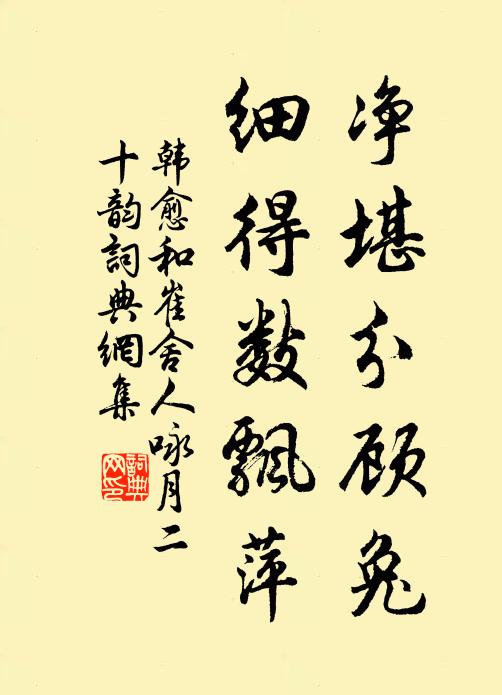 净堪分顾兔
细得数飘萍
韩愈和崔舍人咏月二
十韵詞典網集
詞典
网印